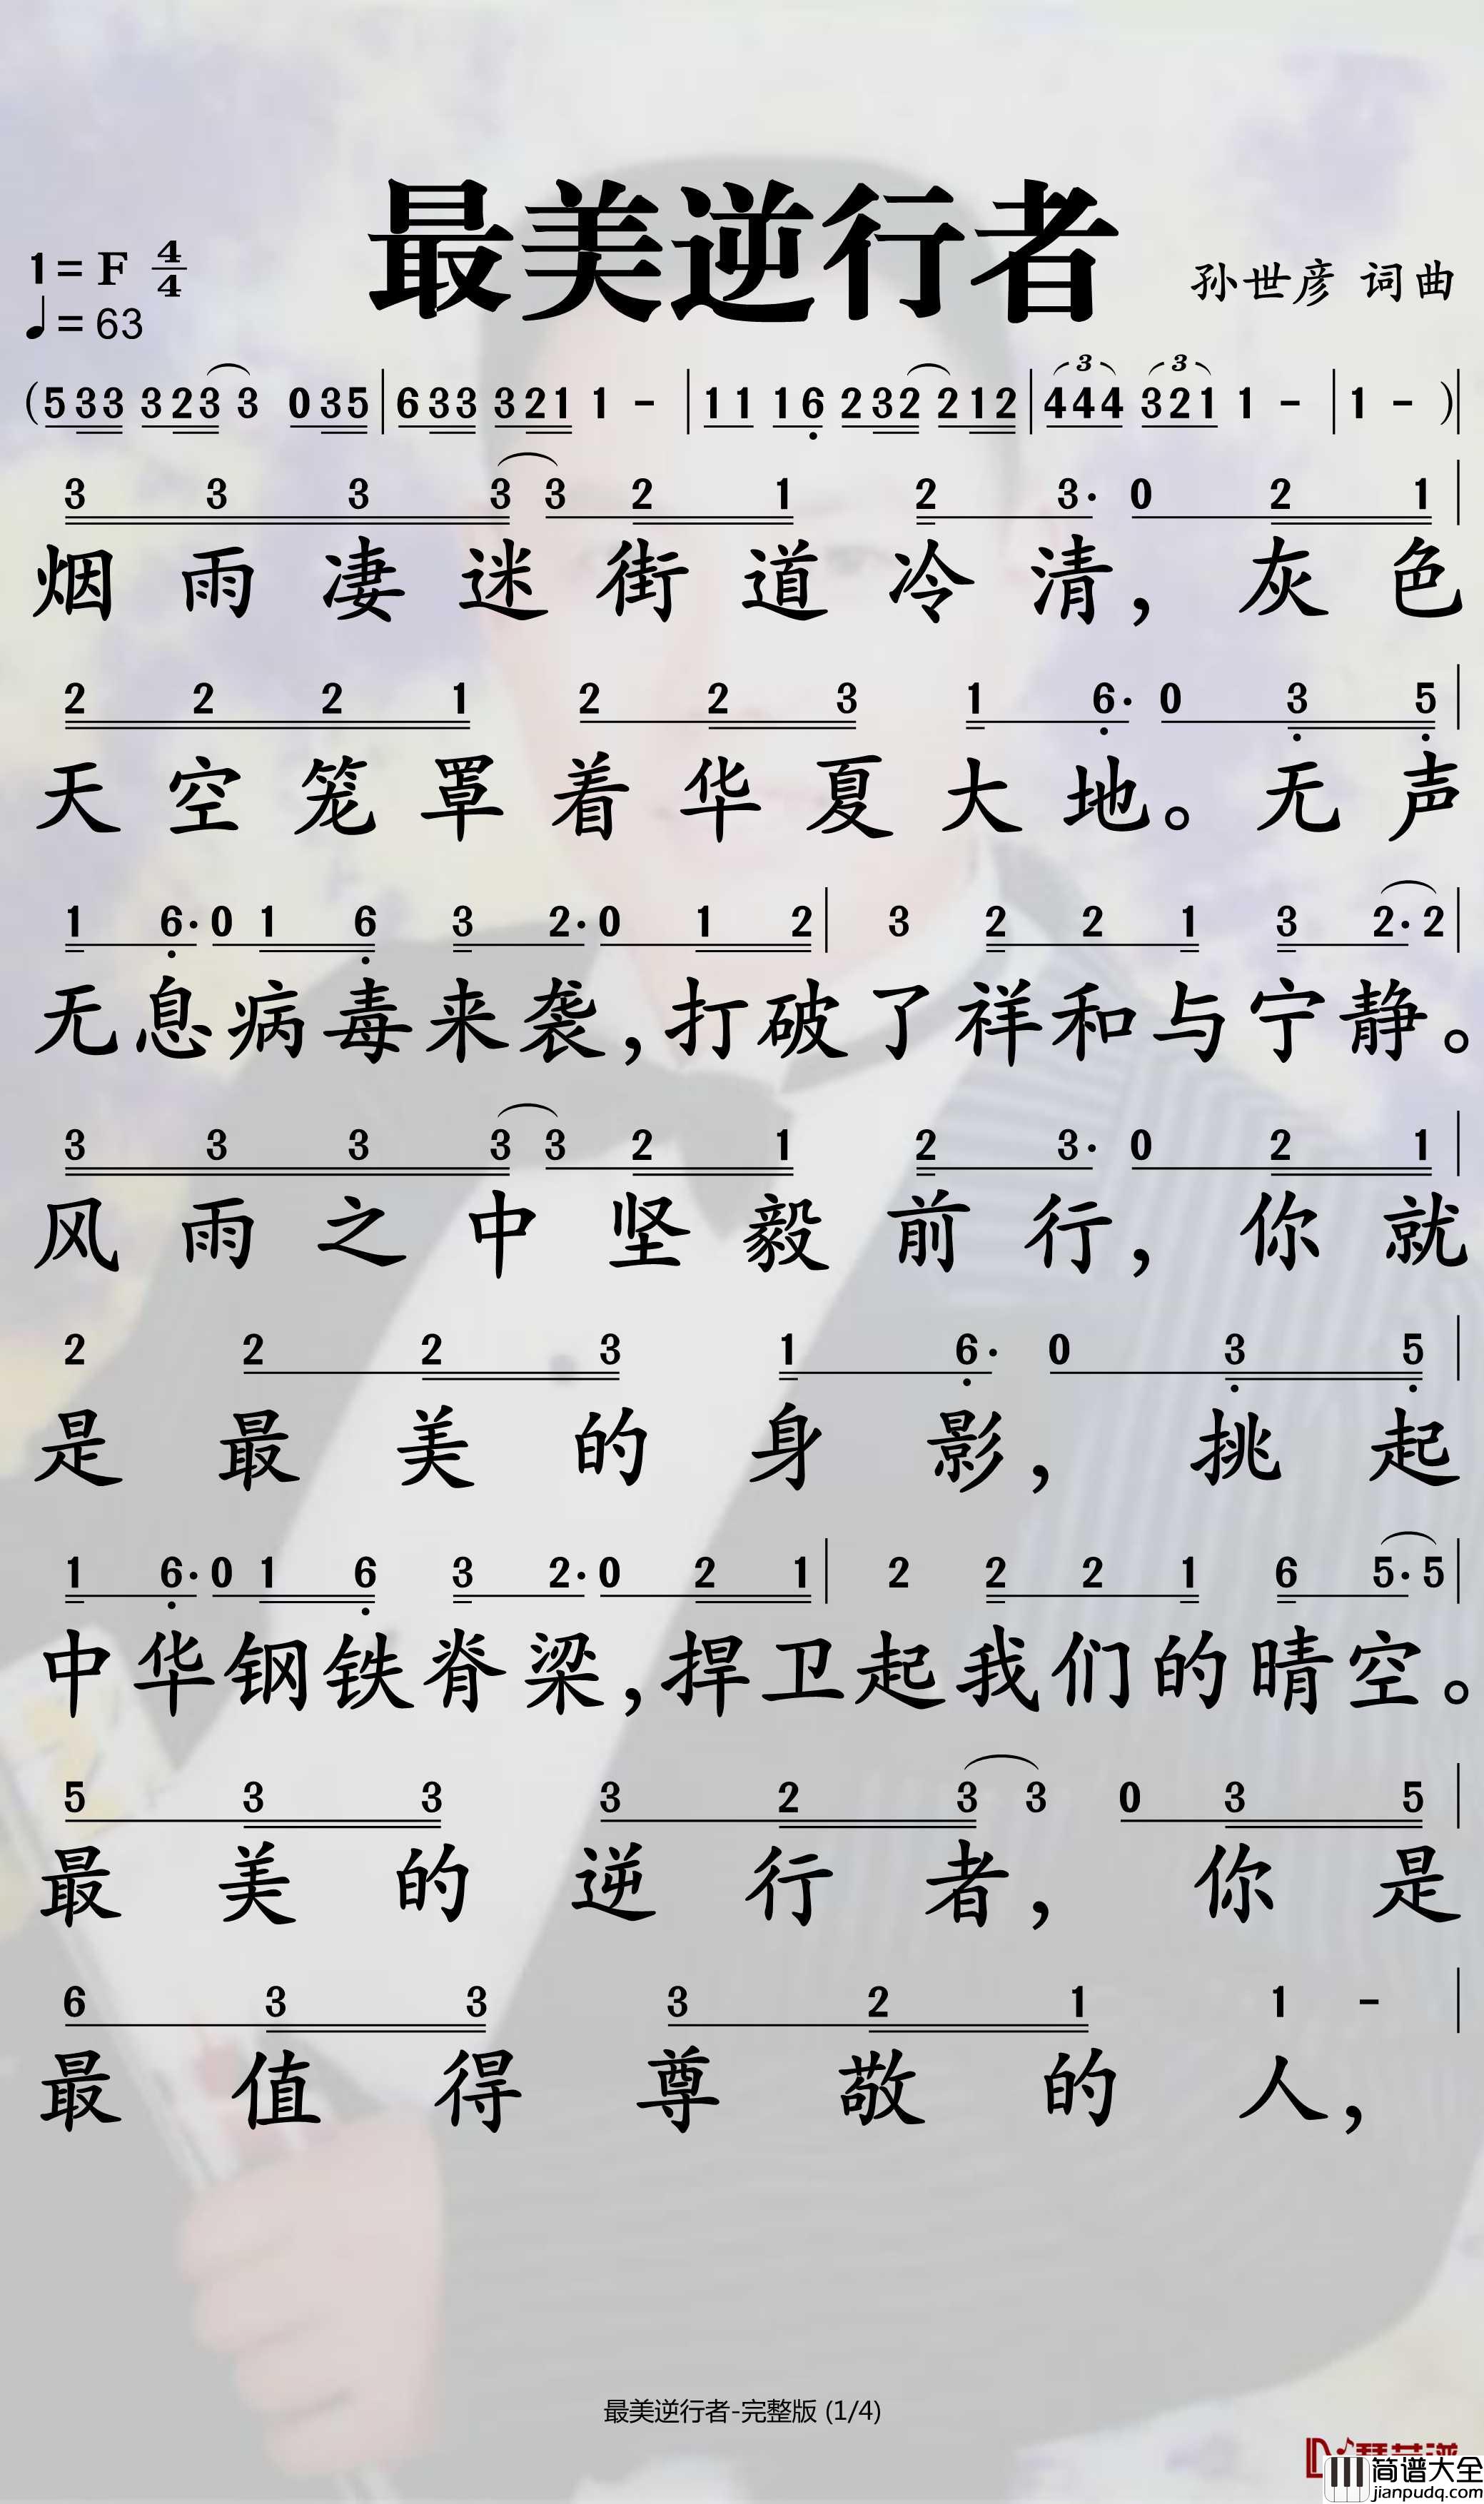 最美逆行者
1= F 4/4
♩= 63
孙世彦 词曲
(5 3 3 3 2 3 3 0 3 5 | 6 3 3 3 2 1 1 - | 1 1 1 6 2 3 2 2 1 2 | 4 4 4 3 2 1 1 - | 1 - )|
3 3 3 3 3 2 1 2 3· 0 2 1 |
烟雨凄迷街道冷清，灰色
2 2 2 1 2 2 3 1 6· 0 3 5 |
天空笼罩着华夏大地。无声
1 6· 0 1 6 3 2· 0 1 2 | 3 2 2 1 3 2· 2 |
无息病毒来袭，打破了祥和与宁静。
3 3 3 3 3 2 1 2 3· 0 2 1 |
风雨之中坚毅前行，你就
2 2 2 3 1 6· 0 3 5 |
是最美的身影，挑起
1 6· 0 1 6 3 2· 0 2 1 | 2 2 2 1 6 5· 5 |
中华钢铁脊梁，捍卫起我们的晴空。
5 3 3 3 2 3 3 0 3 5 |
最美的逆行者，你是
6 3 3 3 2 1 1 - |
最值得尊敬的人，
最美逆行者-完整版 (1/4)
简谱大全
jianpudq.com